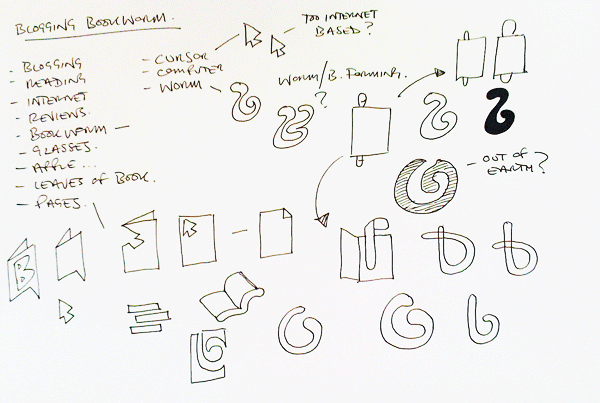 BLOGGING BOOKWORM.
- BLOGGING
- READING
- INTERNET
- REVIEWS.
- BOOKWORM -
- GLASSES.
- APPLE...
- LEAVES OF BOOK.
- PAGES.
- CURSOR
- COMPUTER
- WORM
TOO INTERNET
BASED?
WORM/B. FORMING.
?
- OUT OF
EARTH?
B